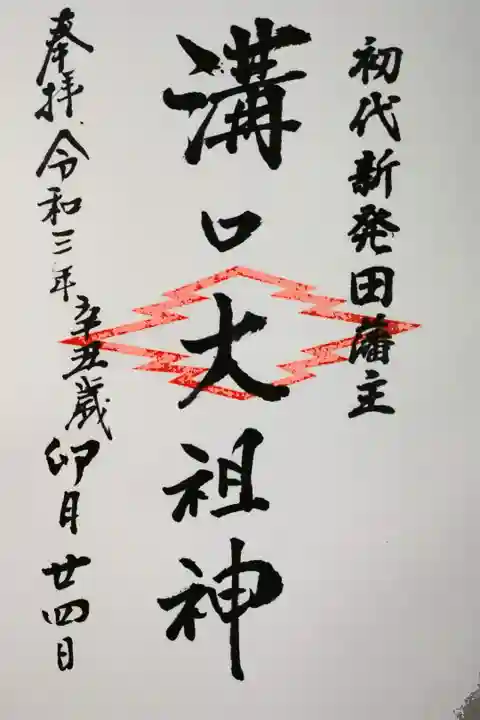 初代新発田藩主
溝口大祖神
奉拝 令和三年 辛丑歳 卯月廿四日